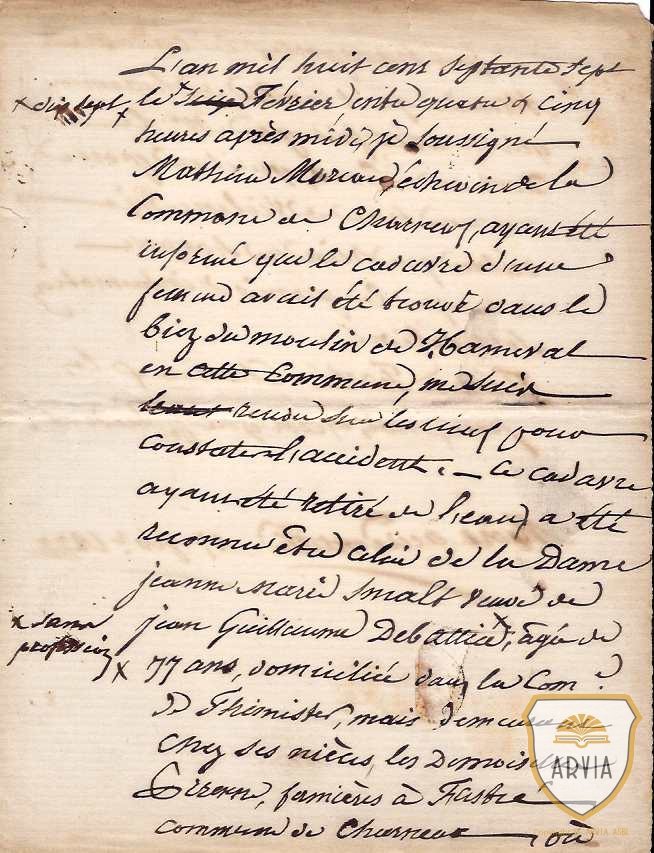 L'an mil huit cent septante sept
x dix sept x
le Février entre quatre et cinq
heures après midi, je soussigné
Mathieu Moreau, échevin de la
Commune de Charneux, ayant été
informé que le cadavre d'une
femme avait été trouvé dans le
biez du moulin de Hameval
en cette Commune, me suis
rendu sur les lieux pour
constater l'accident. — Ce cadavre
ayant été retiré de l'eau, a été
reconnu être celui de la Dame
jeanne Marie Smalt veuve de
x sans
profession x
jean Guillaume Debattice, x âgée de
77 ans, domiciliée dans la Com.e
de Thimister, mais demeurant
chez ses nièces, les Demoiselles
fermières à
commune de Charneux — où
ARVIA
ARVIA ASBL